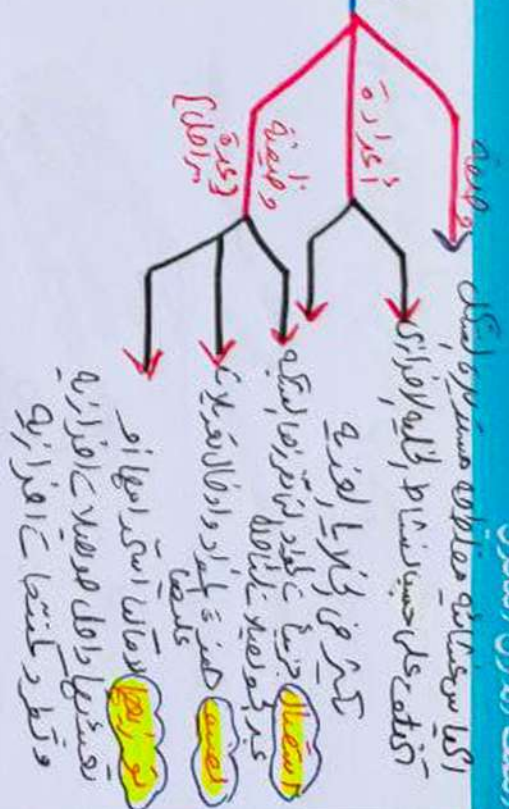 وصفه
أكياس غشائية مفلطحة مستديرة الشكل
أعداده
تتوقف على حسب نشاط الخلية الإفرازي
تكثر في الخلايا الغدية
وظيفته
(عدة مراحل)
استقبال جزيئات المواد التي تفرزها الشبكة
عبر الحويصلات الناقلة
تصنيف هذه المواد وإدخال تعديلات
عليها
توزيعها لأماكن استخدامها أو
تعبئتها داخل حويصلات إفرازية
وتطرد كمنتجات إفرازية